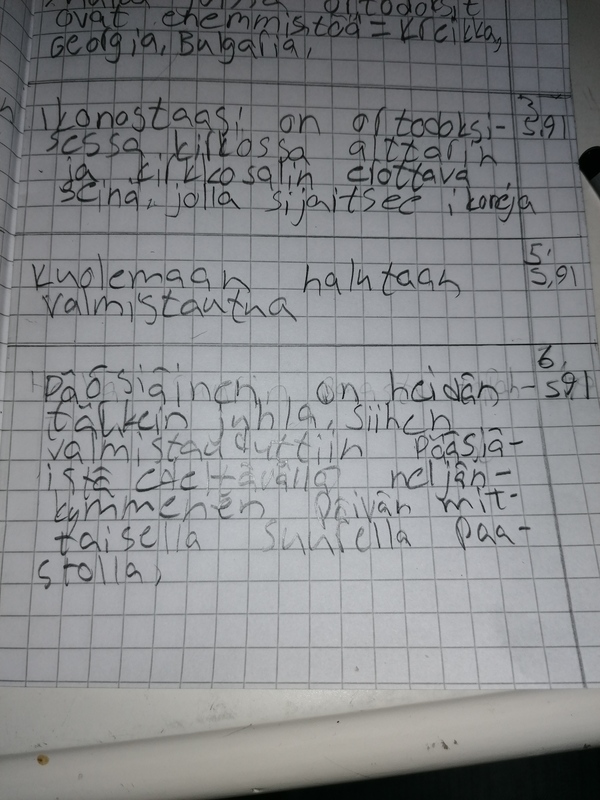 ortodoksit
ovat enemmistöä = Kreikka,
Georgia, Bulgaria,
Ikonostaasi on ortodoksi-
3,
s,91
sessa kirkossa alttarin
ja kirkkosalin erottava
seinä, jolla sijaitsee ikoneja
5,
s,91
Kuolemaan halutaan
valmistautua
6,
s91
Pääsiäinen on heidän
tärkein juhla, siihen
valmistaudutiin pääsiä-
istä edeltävällä neljän-
kymmenen päivän mit-
taisella suurella paa-
stolla,